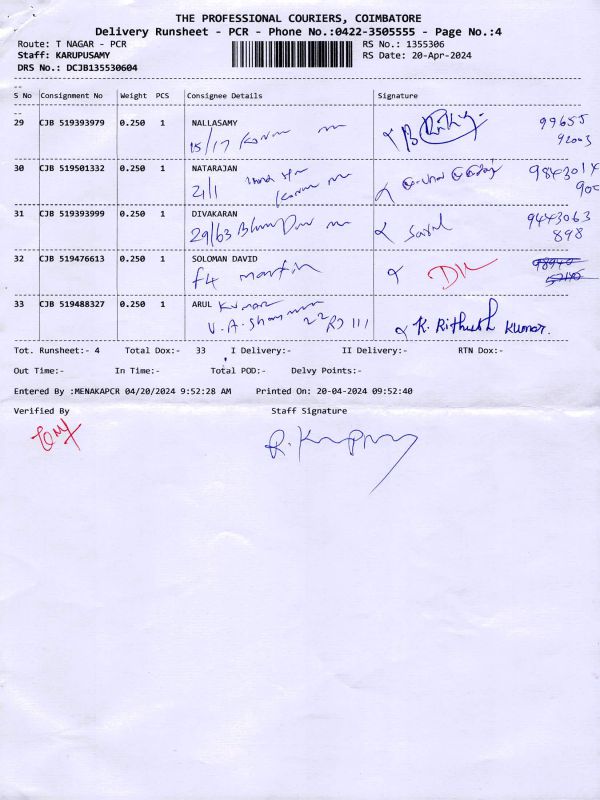 THE PROFESSIONAL COURIERS, COIMBATORE
Delivery Runsheet - PCR - Phone No.:0422-3505555 - Page No.:4
Route: T NAGAR - PCR RS No.: 1355306
Staff: KARUPUSAMY RS Date: 20-Apr-2024
DRS No.: DCJB135530604
S No Consignment No Weight PCS Consignee Details Signature
29 CJB 519393979 0.250 1 NALLASAMY 99655
15/17 92003
30 CJB 519501332 0.250 1 NATARAJAN 9843014
21/1
31 CJB 519393999 0.250 1 DIVAKARAN 9443063
29/63 898
32 CJB 519476613 0.250 1 SOLOMAN DAVID
F4 martin
33 CJB 519488327 0.250 1 ARUL Kumar
V.A. K. Rithush Kumar.
Tot. Runsheet:- 4 Total Dox:- 33 I Delivery:- II Delivery:- RTN Dox:-
Out Time:- In Time:- Total POD:- Delvy Points:-
Entered By :MENAKAPCR 04/20/2024 9:52:28 AM Printed On: 20-04-2024 09:52:40
Verified By Staff Signature